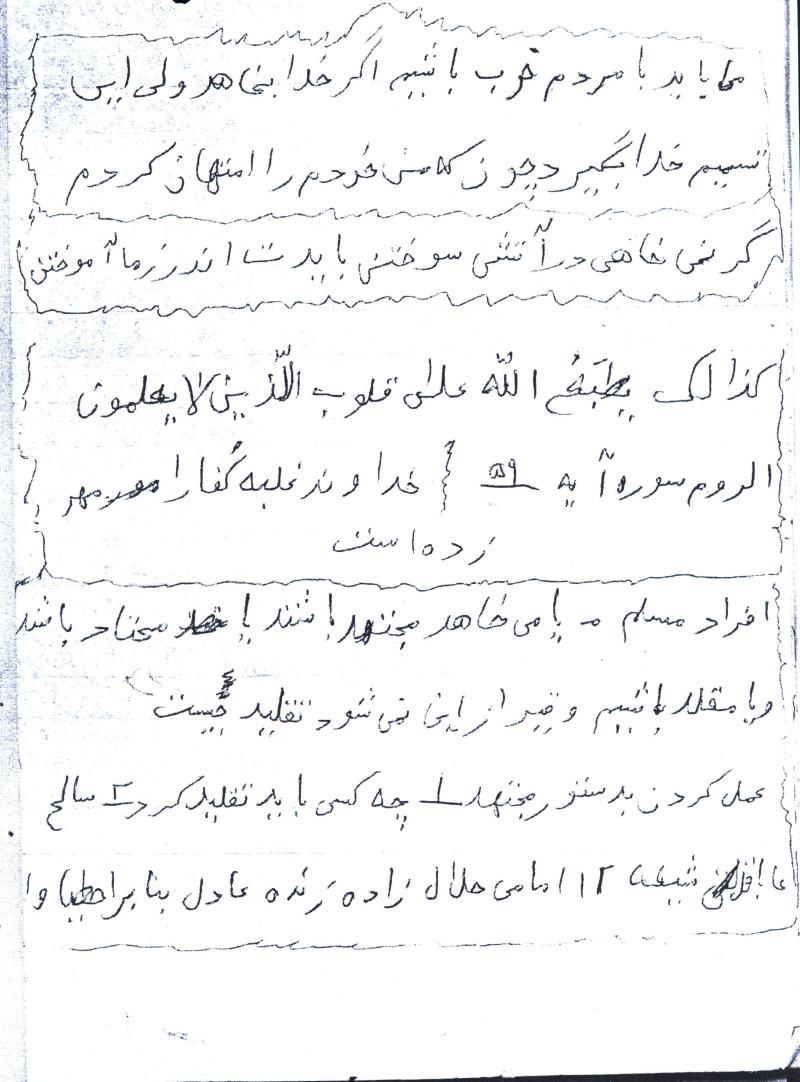 ما باید با مردم خوب باشیم اگر خدا بخاهد ولی این
تسمیم خدا بگیرد چون که من خودم را امتهان کردم
گر نمی خاهی در آتش سوختن باید ت اندرز ما آموختن
کذالک یطبَعُ اللّه علی قلوب الّذین لا یعلمون
الروم سوره آیه ۵۹ خدا وند غلبه کُفا را مهر
زده است
افراد مسلم یا می خاهد مجتهد باشند یا محتاد باشد
و یا مقلد باشیم و قیر از این نمی شود تقلید چیست
عمل کردن بدستور مجتهد ۱ چه کسی باید تقلید کرد ۲ سالح
عاقل شیعه ۱۲ امامی حلال زاده زنده عادل بنا بر احطیا وا